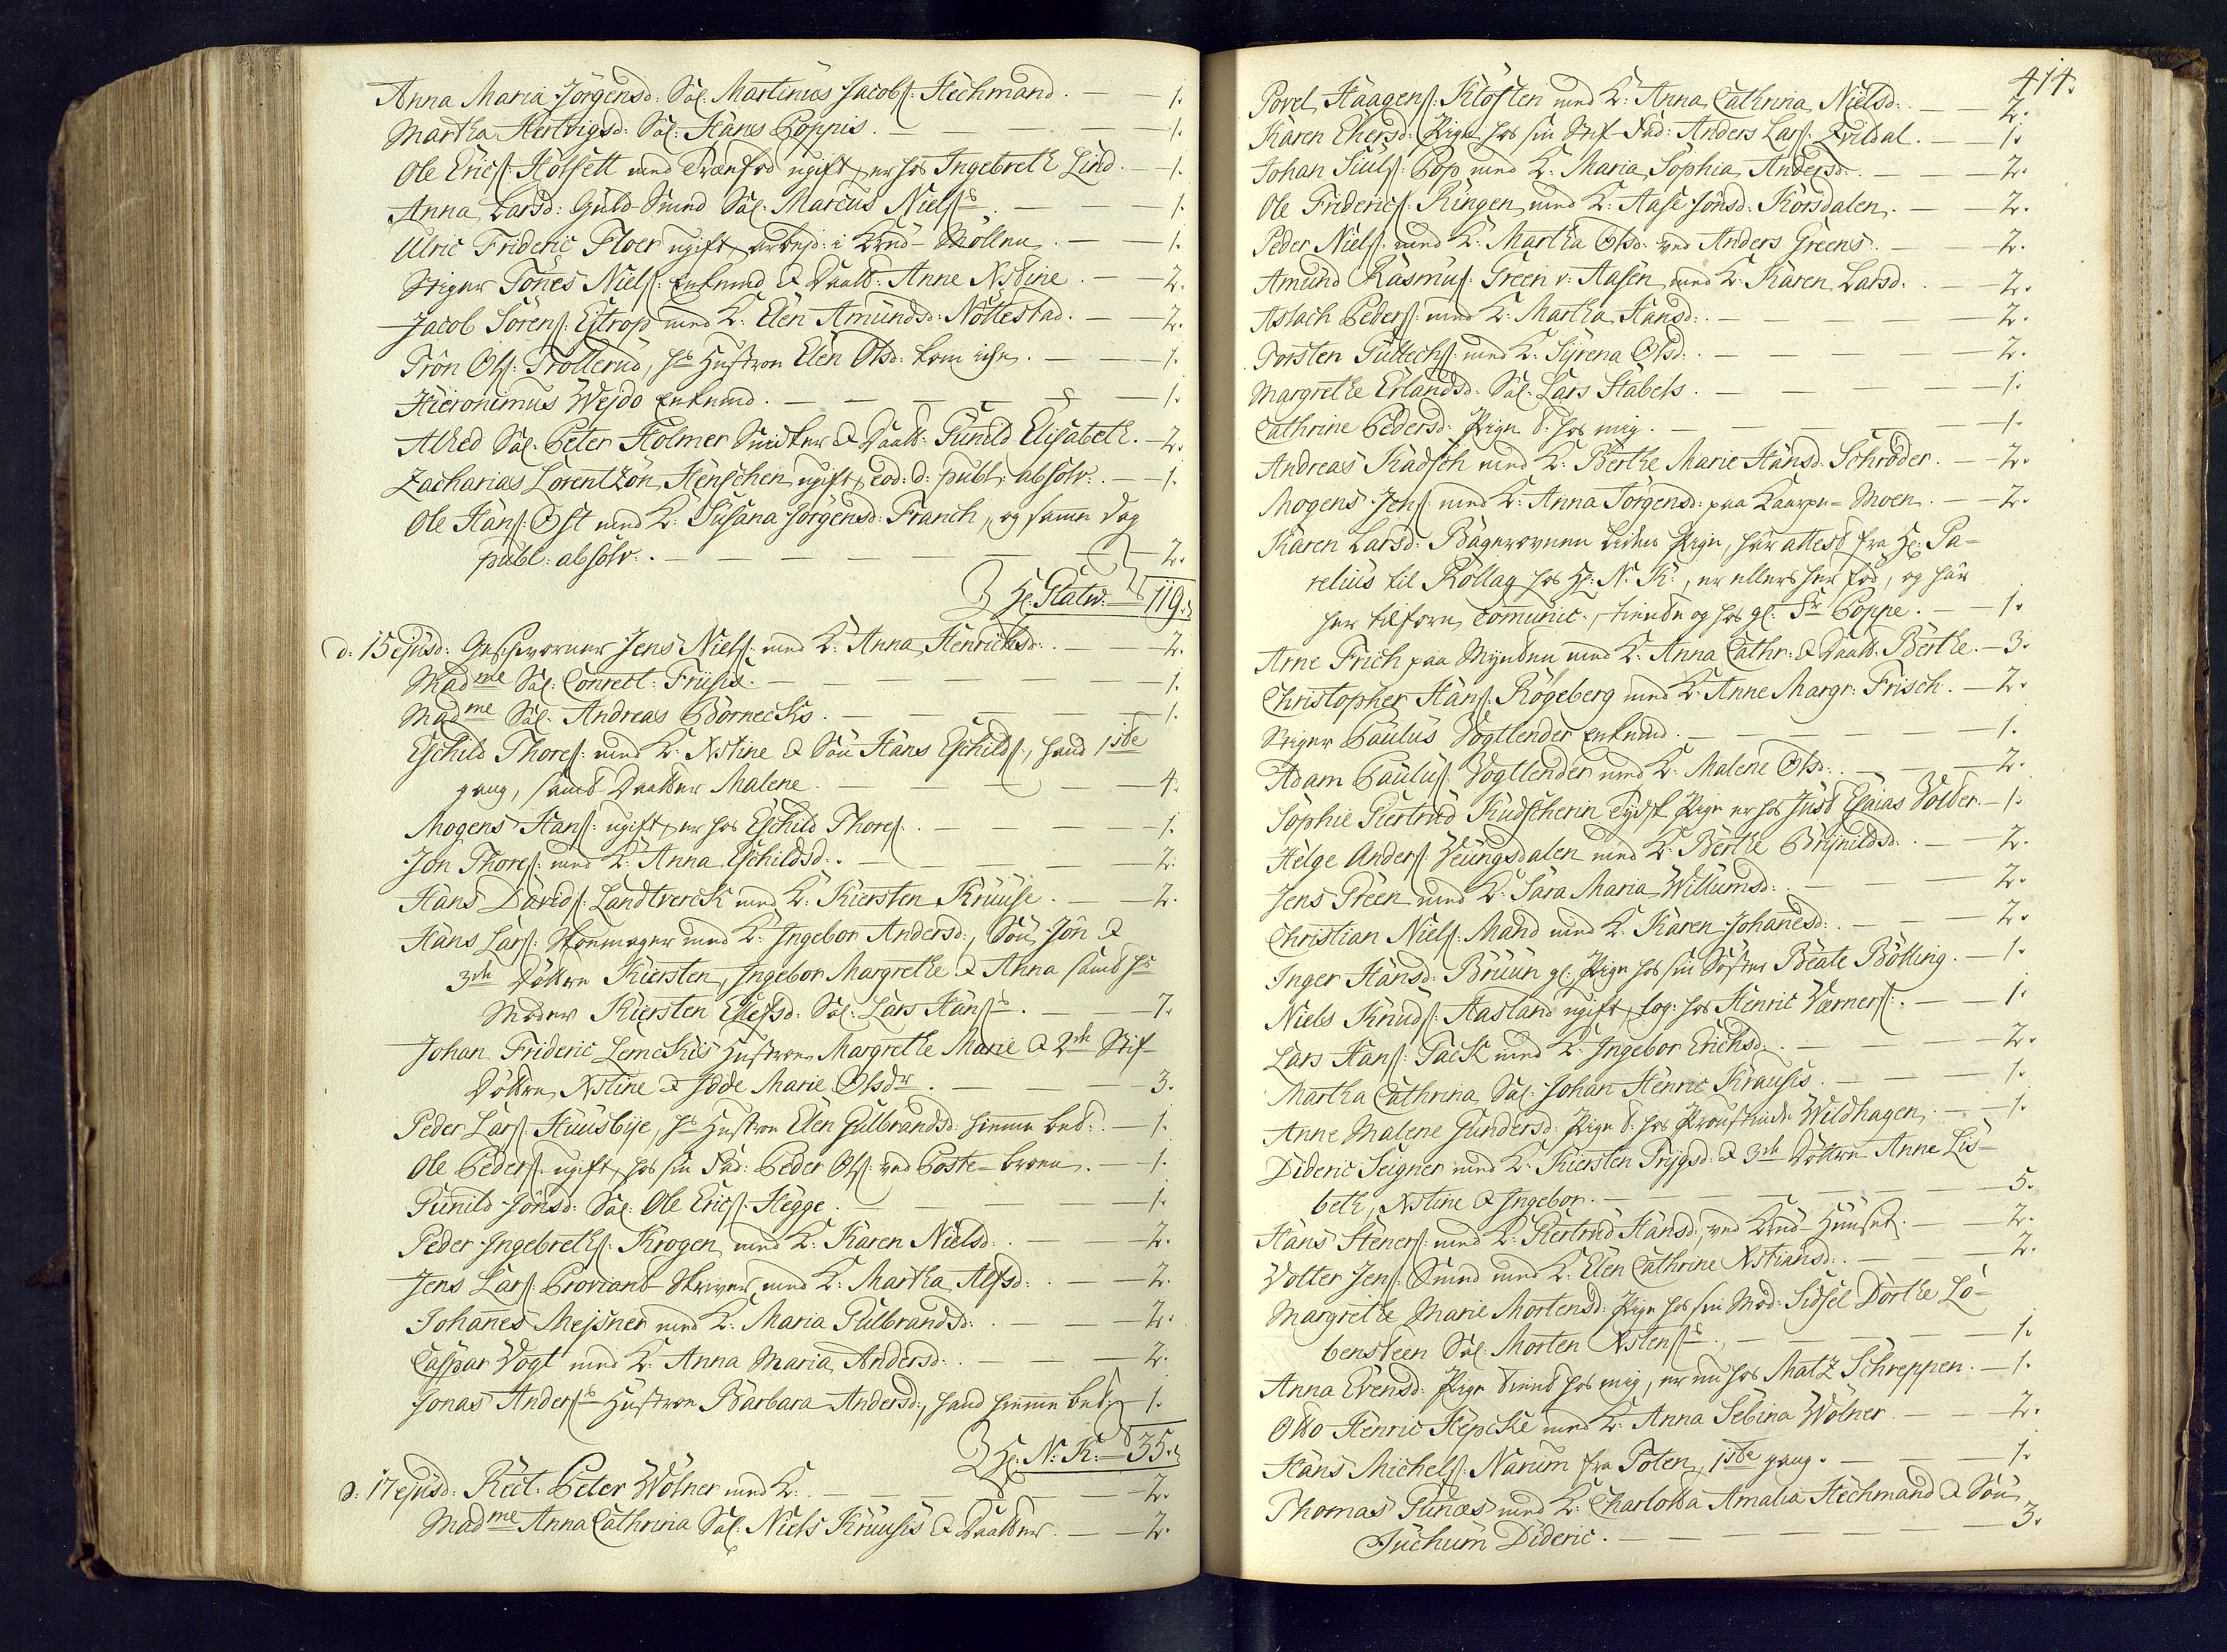 Anna Maria Jörgensd: Sal: Martinus Jacobs: Hechmand. — 1.
Martha Hertvigsd: Sal: Hans Poppis. — 1.
Ole Erics: Holsett med Træefod ugift, er hos Ingebreth Lind. — 1.
Anna Larsd: Guld-Smed Sal: Marcus Niels:s — 1.
Ulric Frideric Floer ugift, arbejd: i Krud-Möllen. — 1.
Stiger Tönes Niels: Enkemd & Daatt: Anne Xstine. — 2.
Jacob Sörens: Estrop med K: Elen Amundsd: Nöttestad. — 2.
Trön Ols: Trollerud, hs Hustroe Elen Olsd: kom iche. — 1.
Hieronimus Wejdo Enkemd. — 1.
Alhed Sal: Peter Holmer Snidker & Daatt: Gunild Elisabeth. — 2.
Zacharias Lorentzön Henschen ugift, eod: d: publ: absolv:. — 1.
Ole Hans: Ost med K: Susana Jörgensd: Franch, og samme dag
publ: absolv:. — 2.
Hr: Platw: — 119.
d: 15 ejusd: Geschworner Jens Niels: med K: Anna Henrichsd:. — 2.
Madme Sal: Conrect: Friisis. — 1.
Madme Sal: Andreas Bornechs. — 1.
Eschild Thores: med K: Xstine & Sön Hans Eschilds:, hand 1ste
gang, samt Daatter Malene. — 4.
Mogens Hans: ugift, er hos Eschild Thores:. — 1.
Jon Thores: med K: Anna Eschildsd:. — 2.
Hans Davids: Landtverck med K: Kiersten Kruuse. — 2.
Hans Lars: Skoemager med K: Ingebor Andersd:, Sön Jon &
3de Döttre Kiersten, Ingebor Margrethe & Anna samt hs
Moder Kiersten Ellefsd: Sal: Lars Hans:s. — 7.
Johan Frideric Lemckis Hustroe Margrethe Marie & 2de Stif-
Döttre Xstine & Idde Marie Olsdr. — 3.
Peder Lars: Huusbye, hs Hustroe Elen Gulbrandsd: hiemme bet:. — 1.
Ole Peders: ugift, hos sin Fad: Peder Ols: ved Poste-broen. — 1.
Gunild Jönsd: Sal: Ole Erics: Hegge. — 1.
Peder Ingebreths: Krogen med K: Karen Nielsd:. — 2.
Jens Lars: Proviant-Skriver med K: Martha Alfsd:. — 2.
Johanes Mejsner med K: Maria Gulbrandsd:. — 2.
Caspar Vogt med K: Anna Maria Andersd:. — 2.
Jonas Anders:s Hustroe Barbara Andersd:, hand hiemme bet: 1.
Hr: N: K: — 35.
d: 17 ejusd: Rect: Peter Wölner med K:. — 2.
Madme Anna Cathrina Sal: Niels Kruusis & Daatter. — 2.
414.
Povel Haagens: Klosten med K: Anna Cathrina Nielsd:. — 2.
Karen Ehersd: Pige hos sin Stif-Fad: Anders Lars: Qvildal. — 1.
Johan Siuls: Pop med K: Maria Sophia Andersd:. — 2.
Ole Frideric: Ringen med K: Aase Jönsd: Korsdalen. — 2.
Peder Niels: med K: Martha Olsd: ved Anders Greens. — 2.
Amund Rasmus: Green v: Aasen med K: Karen Larsd:. — 2.
Aslach Peders: med K: Martha Hansd:. — 2.
Torsten Gullechs: med K: Syrena Olsd:. — 2.
Margrethe Erlandsd: Sal: Lars Stabels. — 1.
Cathrine Pedersd: Pige t: hos mig. — 1.
Andreas Kadsch med K: Berthe Marie Hansd: Schröder. — 2.
Mogens Jens: med K: Anna Jörgensd: paa Kaarpe-Moen. — 2.
Karen Larsd: Bagerovnen liden Pige, har attest fra Hr: Pa-
relius til Rollag hos Hr: N: K:, er ellers her föd, og har
her tilforn comunic:, tiendte og hos gl: Fr: Poppe. — 1.
Arne Frich paa Mynten med K: Anna Cathr: & Daatt: Berthe. — 3.
Christopher Hans: Rögeberg med K: Anne Margr: Frisch. — 2.
Stiger Paulus Vogtlender Enkemd. — 1.
Adam Paulus: Vogtlender med K: Malene Olsd:. — 2.
Sophie Giertrud Kudscherin Tydsk Pige er hos Just Esaias Volder. — 1.
Helge Anders: Veungsdalen med K: Berthe Brynildsd:. — 2.
Jens Preen med K: Sara Maria Willumsd:. — 2.
Christian Niels: Mand med K: Karen Johanesd:. — 2.
Inger Hansd: Bruun gl: Pige hos sin Söster Beate Bölling. — 1.
Niels Knuds: Aasland ugift, log: hos Henric Værners:. — 1.
Lars Hans: Tack med K: Ingebor Erichsd:. — 2.
Martha Cathrina Sal: Johan Henric Krausis. — 1.
Anne Malene Gundersd: Pige t: hos Proustinde Wildhagen. — 1.
Dideric Seigner med K: Kiersten Trygsd: & 3de Döttre Anne Lis-
beth, Xstine & Ingebor. — 5.
Hans Steners: med K: Giertrud Hansd:, ved Krud-Huuset. — 2.
Volter Jens: Smed med K: Elen Cathrine Xstiansd:. — 2.
Margrethe Marie Mortensd: Pige hos sin Mod: Sidsel Dorthe Lö-
bensteen Sal: Morten Xstens:s. — 1.
Anna Evensd: Pige tient hos mig, er nu hos Matz Schreppen. — 1.
Otto Henric Hepcke med K: Anna Sebina Wölner. — 2.
Hans Michels: Narum fra Toten, 1ste gang. — 1.
Thomas Tunæs med K: Charlotta Amalia Hechmand & Sön
Juchum Dideric. — 3.